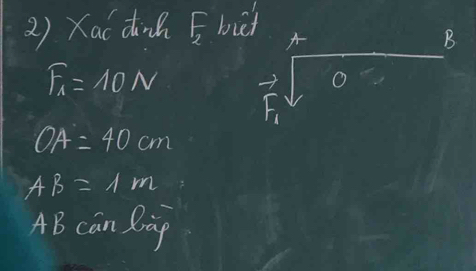 2) Xác định F₂ biết
F₁ = 10 N
OA = 40 cm
AB = 1 m
AB cân bằng
A
B
O
F₁